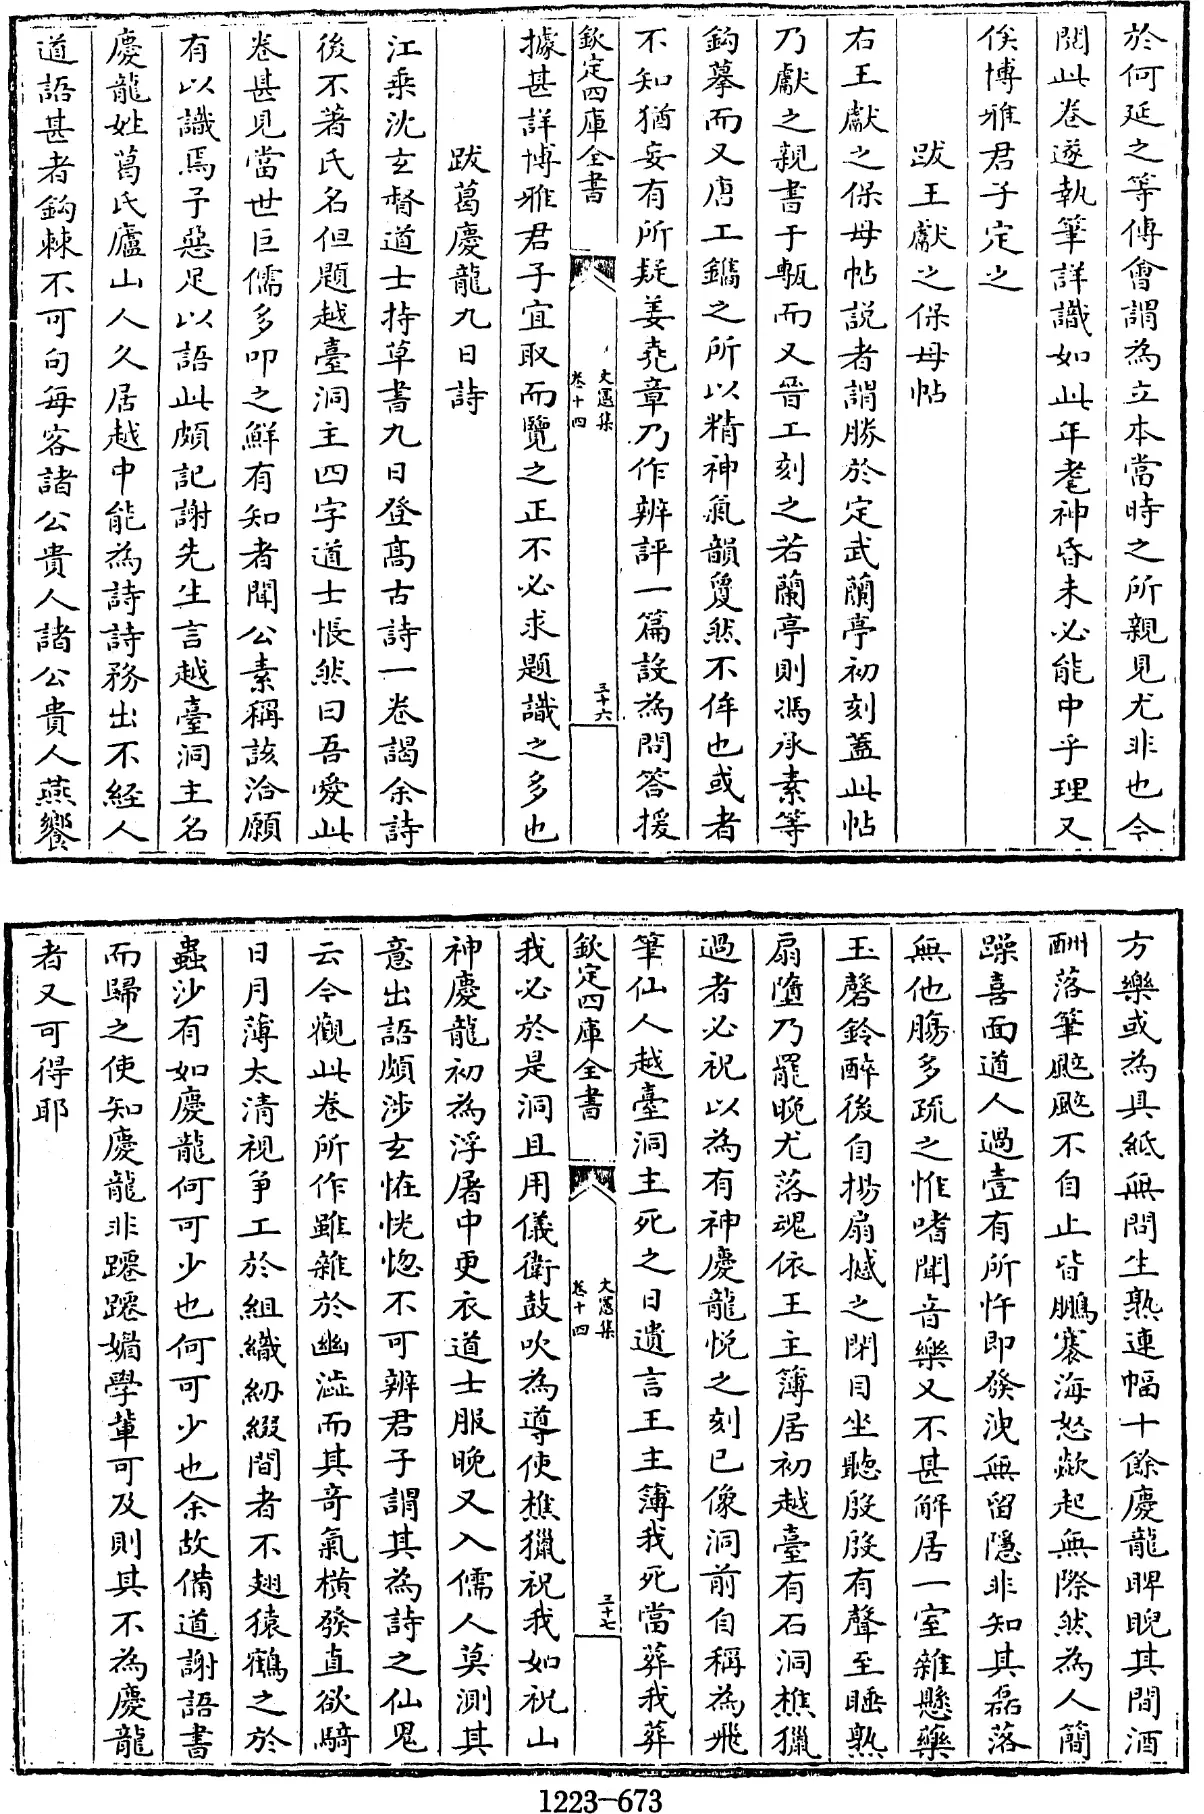 於何延之等傅會謂為立本當時之所親見尤非也今
閱此卷遂執筆詳識如此年耄神昏未必能中乎理又
俟博雅君子定之
跋王獻之保母帖
右王獻之保母帖説者謂勝於定武蘭亭初刻蓋此帖
乃獻之親書于甎而又晉工刻之若蘭亭則馮承素等
鈎摹而又唐工鐫之所以精神氣韻敻然不侔也或者
不知猶妄有所疑姜堯章乃作辨評一篇設為問答援
欽定四庫全書
文憲集
卷十四
三十六
據甚詳博雅君子宜取而覽之正不必求題識之多也
跋葛慶龍九日詩
江乗沈玄督道士持草書九日登高古詩一卷謁余詩
後不著氏名但題越臺洞主四字道士悵然曰吾愛此
卷甚見當世巨儒多叩之鮮有知者聞公素稱該洽願
有以識焉予惡足以語此頗記謝先生言越臺洞主名
慶龍姓葛氏廬山人久居越中能為詩詩務出不經人
道語甚者鈎棘不可句每客諸公貴人諸公貴人燕饗
方樂或為具紙無問生熟連幅十餘慶龍睥睨其間酒
酬落筆颭颭不自止皆鵬騫海怒歘起無際然為人簡
躁喜面道人過壹有所忤即發洩無留隱非知其磊落
無他膓多疏之惟嗜聞音樂又不甚解居一室雜懸藥
玉磬鈴醉後自揚扇撼之閉目坐聽殷殷有聲至睡熟
扇墮乃罷晚尤落魂依王主簿居初越臺有石洞樵獵
過者必祝以為有神慶龍悦之刻已像洞前自稱為飛
筆仙人越臺洞主死之日遺言王主簿我死當葬我葬
欽定四庫全書
文憲集
卷十四
三十七
我必於是洞且用儀衛鼓吹為導使樵獵祝我如祝山
神慶龍初為浮屠中更衣道士服晚又入儒人莫測其
意出語頗渉玄恠恍惚不可辨君子謂其為詩之仙鬼
云今觀此卷所作雖雜於幽澁而其竒氣横發直欲騎
日月薄太清視爭工於組織紉綴間者不翅猿鶴之於
蟲沙有如慶龍何可少也何可少也余故備道謝語書
而歸之使知慶龍非躚躚媚學輩可及則其不為慶龍
者又可得耶
1223-673